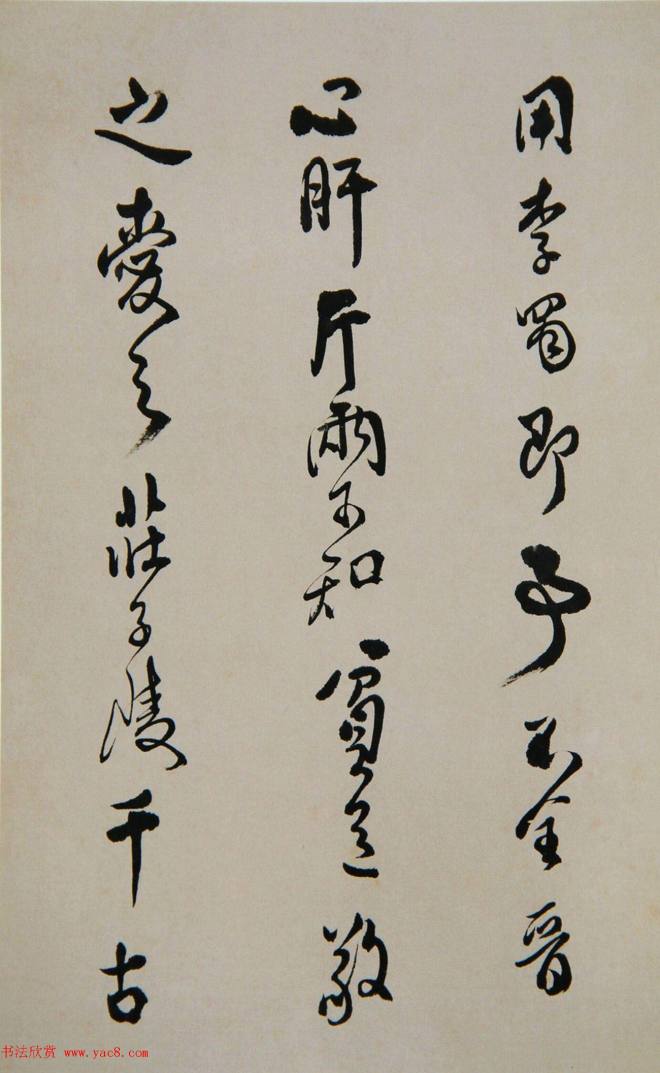 用李蜀即事不全晋
心肝斤兩不知貧道敬
之愛之莊子陵千古
书法欣赏 www.yac8.com